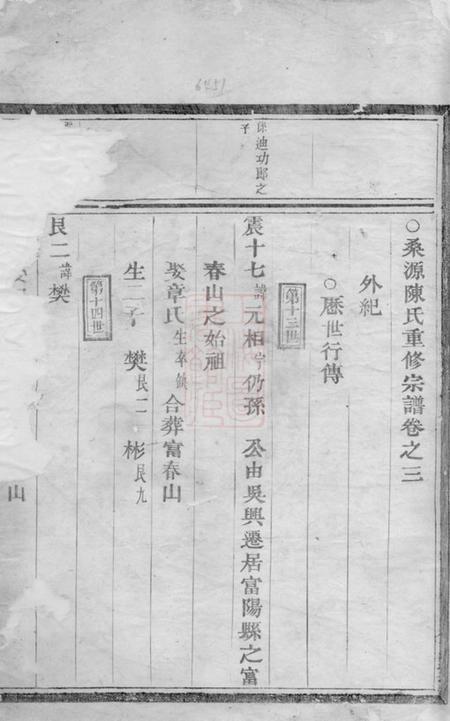 6451
○桑源陳氏重修宗譜卷之三
外紀
○歷世行傳
第十三世
迪功郎之
子
震十七諱元相字仍孫 公由吳興遷居富陽縣之富
春山之始祖
娶章氏生卒缺合葬富春山
生二子 樊艮二 彬艮九
第十四世
艮二諱樊
山